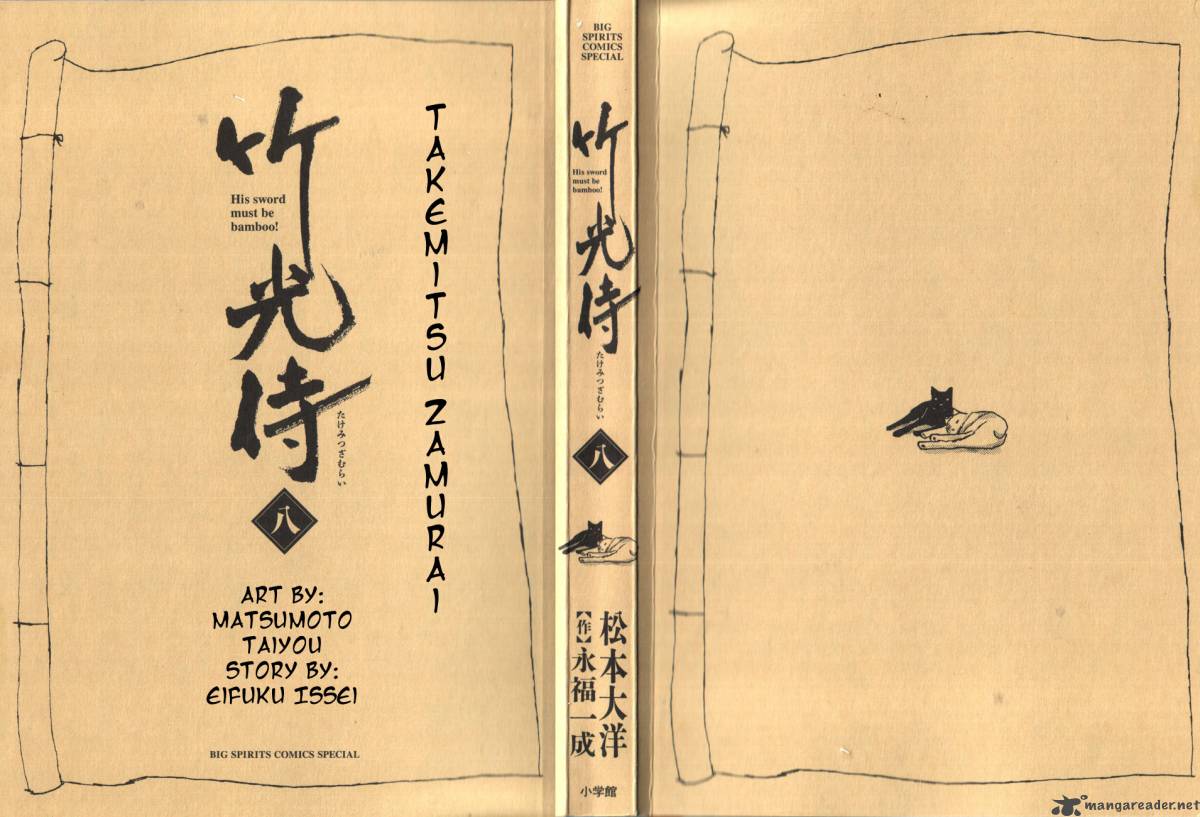 竹光侍
His sword
must be
bamboo!
たけみつざむらい
八
TAKEMITSU ZAMURAI
ART BY:
MATSUMOTO
TAIYOU
STORY BY:
EIFUKU ISSEI
BIG SPIRITS COMICS SPECIAL
BIG
SPIRITS
COMICS
SPECIAL
竹光侍
His sword
must be
bamboo!
たけみつざむらい
八
松本大洋
【作】永福一成
小学館
mangareader.net